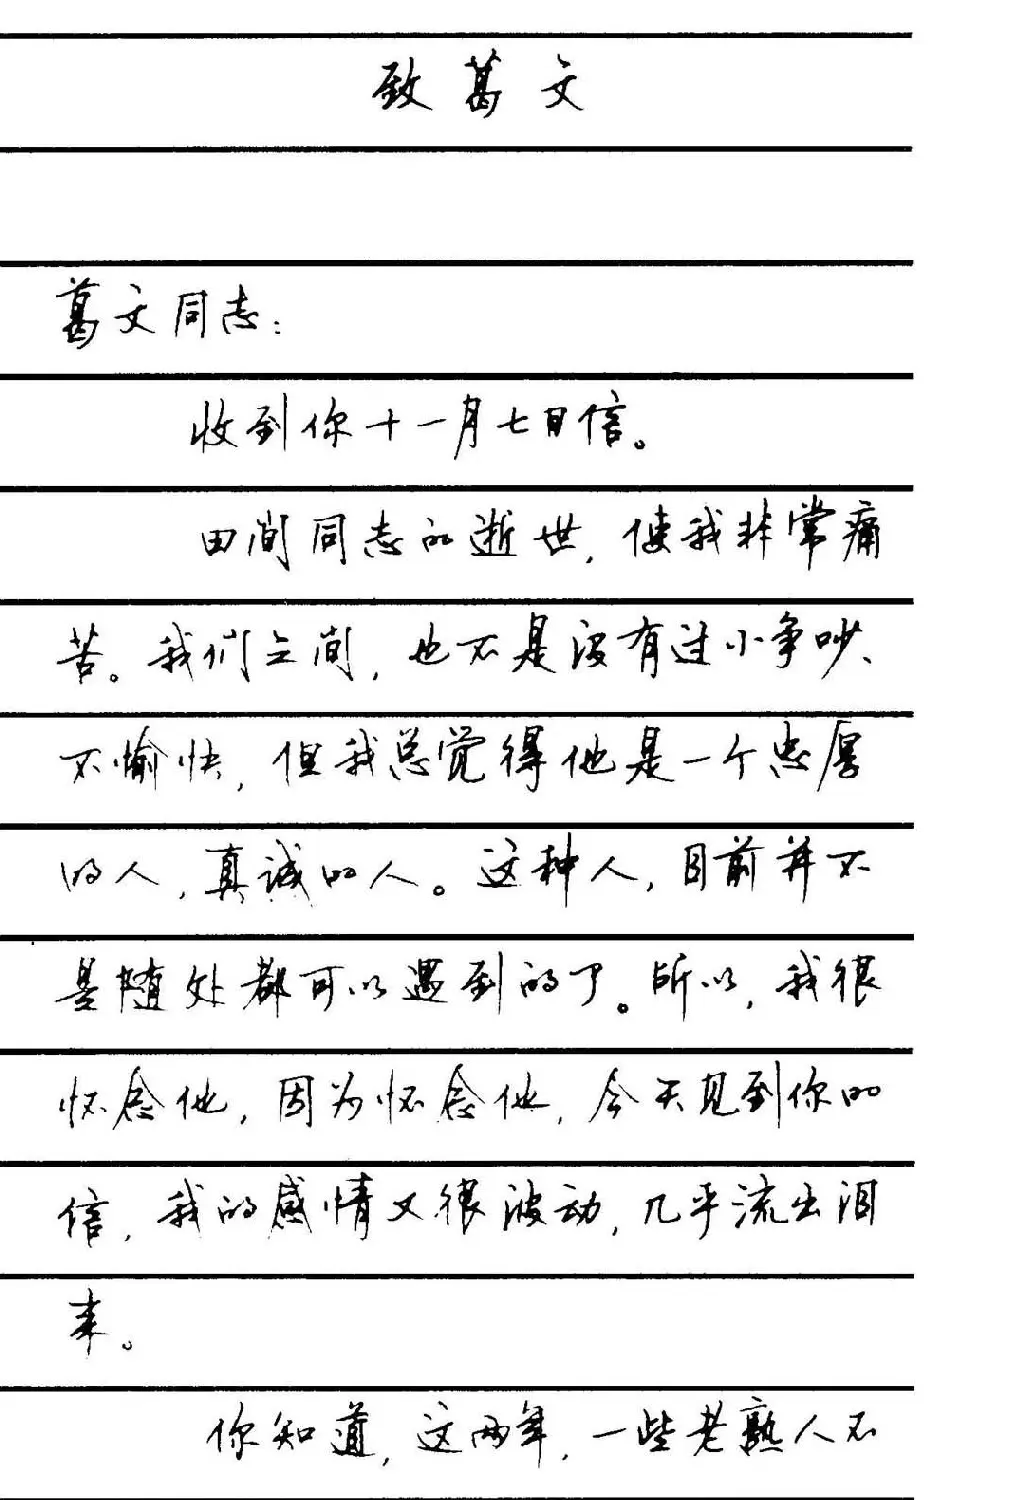 致葛文
葛文同志：
收到你十一月七日信。
田间同志的逝世，使我非常痛
苦。我们之间，也不是没有过小争吵、
不愉快，但我总觉得他是一个忠厚
的人，真诚的人。这种人，目前并不
是随处都可以遇到的了。所以，我很
怀念他，因为怀念他，今天见到你的
信，我的感情又很波动，几乎流出泪
来。
你知道，这两年，一些老熟人不